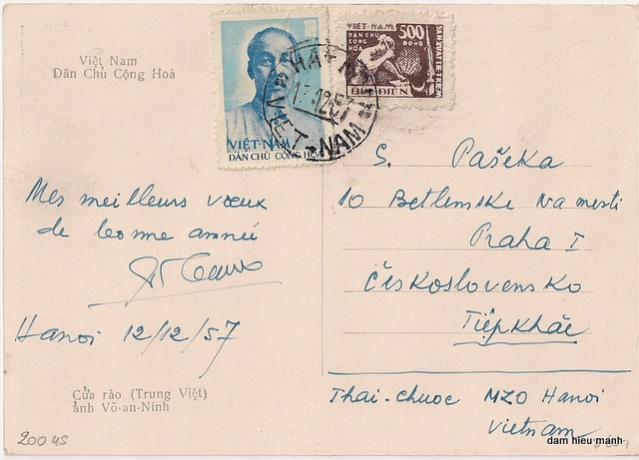 Việt Nam
Dân Chủ Cộng Hoà
VIỆT-NAM
DÂN CHỦ CỘNG HÒA
VIỆT-NAM
DÂN CHỦ
CỘNG
HÒA
500
ĐỒNG
BƯU ĐIỆN
SẢN XUẤT LE TRE
HÀ-NỘI
12.57
VIỆT-NAM
Mes meilleurs vœux
de bonne année
Hanoi 12/12/57
Cửa rào (Trung Việt)
ảnh Võ-an-Ninh
200 US
S. Pašeka
10 Betlemske Namesti
Praha I
Československo
Tiệpkhắc
Thai-Chuoc MZO Hanoi
Vietnam
dam hieu manh